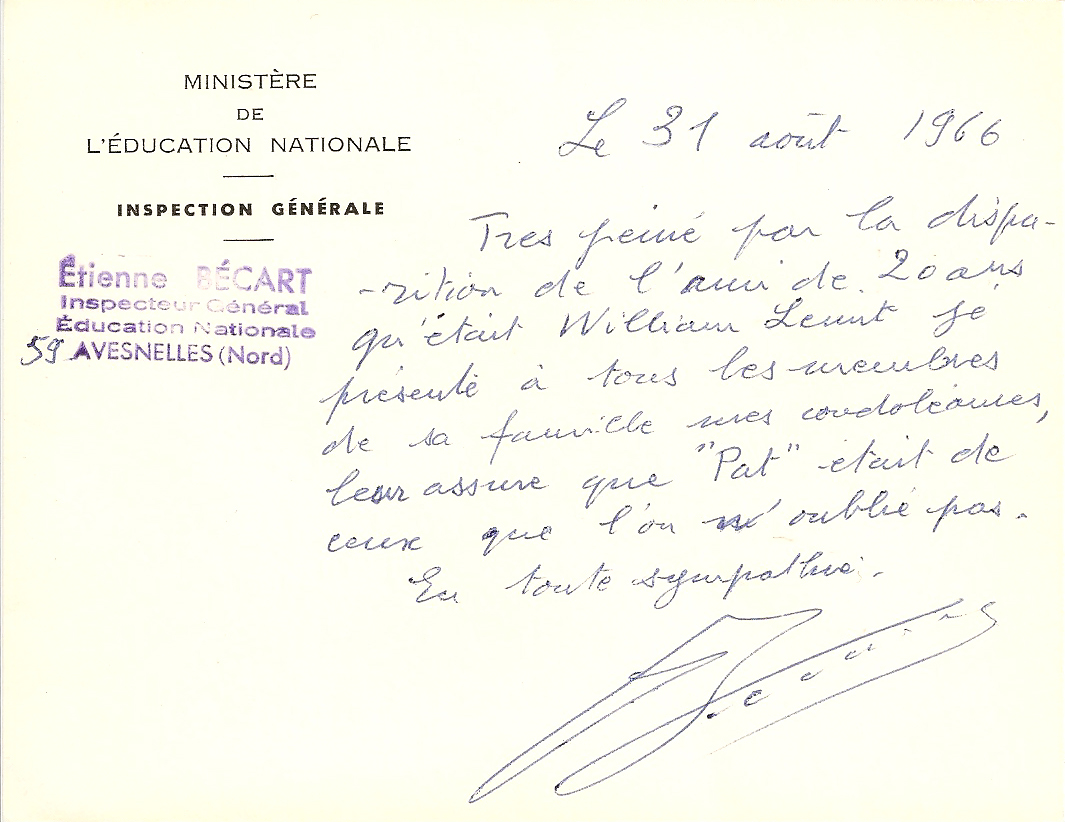 MINISTÈRE
DE
L'ÉDUCATION NATIONALE
INSPECTION GÉNÉRALE
Étienne BÉCART
Inspecteur Général
Éducation Nationale
59 AVESNELLES (Nord)
Le 31 août 1966
Tres peiné par la dispa-
-rition de l'ami de 20 ans
qu'était William je
présente à tous les membres
de sa famille mes condoléances,
leur assure que "Pat" était de
ceux que l'on n'oublie pas.
En toute sympathie.